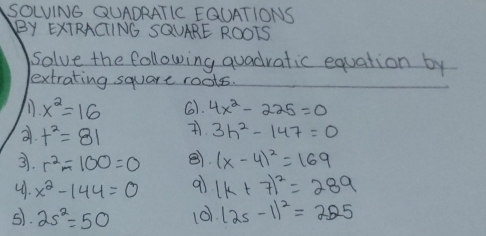 SOLVING QUADRATIC EQUATIONS
BY EXTRACTING SQUARE ROOTS
Solve the following quadratic equation by
extrating square roots.
1). x² = 16
2). t² = 81
3). r² - 100 = 0
4). x² - 144 = 0
5). 2s² = 50
6). 4x² - 225 = 0
7). 3h² - 147 = 0
8). (x - 4)² = 169
9) (k + 7)² = 289
10). (2s - 1)² = 225